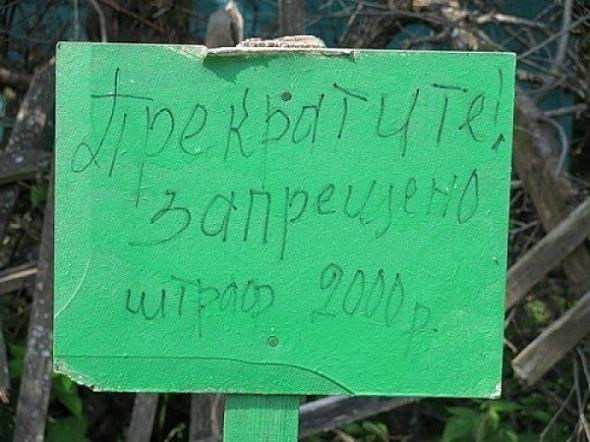 Прекратите!
запрещено
штраф 2000р.